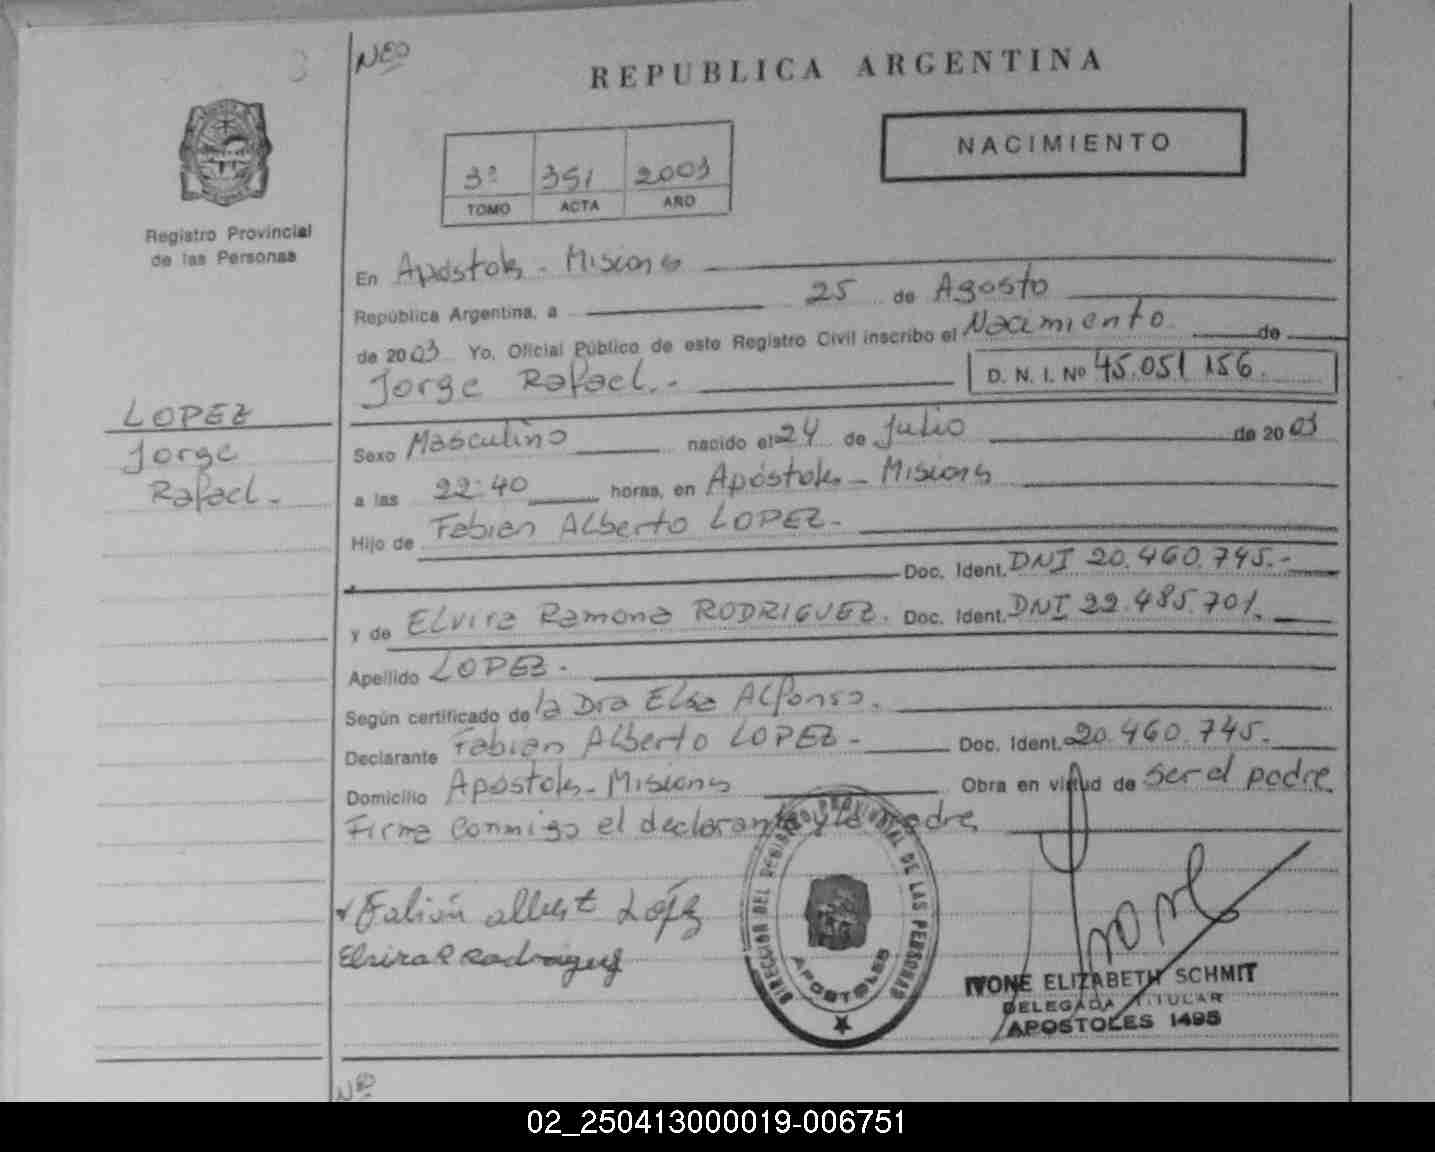 NEO
REPUBLICA ARGENTINA
NACIMIENTO
3º 351 2003
TOMO ACTA AÑO
Registro Provincial
de las Personas
En Apóstoles - Misiones
República Argentina, a 25 de Agosto
de 2003 Yo, Oficial Público de este Registro Civil inscribo el Nacimiento de
Jorge Rafael.- D. N. I. Nº 45.051 156.
LOPEZ
Jorge
Rafael.-
Sexo Masculino nacido el 24 de Julio de 2003
a las 22:40 horas, en Apóstoles - Misiones
Hijo de Fabian Alberto LOPEZ.-
Doc. Ident. DNI 20.460.745.-
y de Elvira Ramona RODRIGUEZ. Doc. Ident. DNI 22.485.701.
Apellido LOPEZ.
Según certificado de la Dra Elsa Alfonso.
Declarante Fabian Alberto LOPEZ - Doc. Ident. 20.460.745.
Domicilio Apóstoles - Misiones Obra en virtud de ser el padre
Firma conmigo el declarante y la madre
Fabián Albert López
Elvira R Rodriguez
DIRECCION DEL REGISTRO PROVINCIAL DE LAS PERSONAS
APOSTOLES
IVONE ELIZABETH SCHMIT
DELEGADA TITULAR
APOSTOLES 1495
NEO
02_250413000019-006751